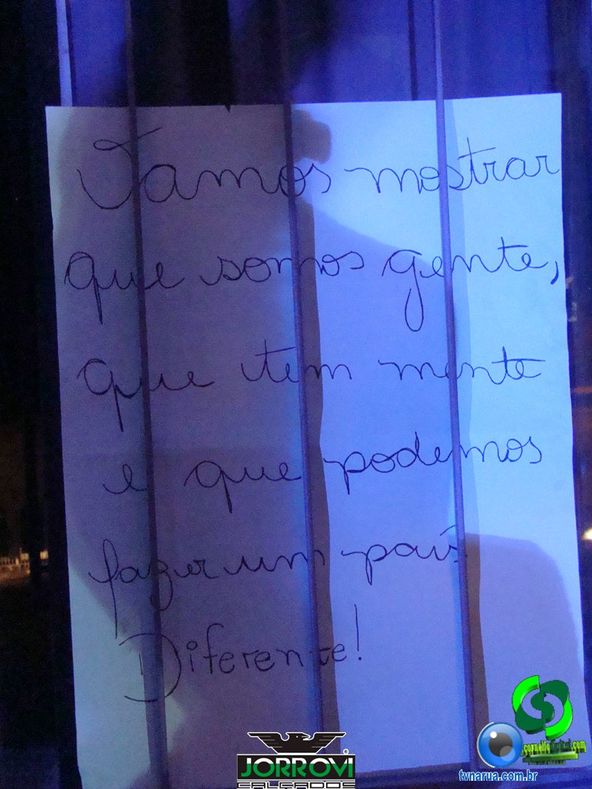 Vamos mostrar
que somos gente,
que tem mente
e que podemos
fazer um país
Diferente!
JORROVI
CALÇADOS
tvnarua.com.br